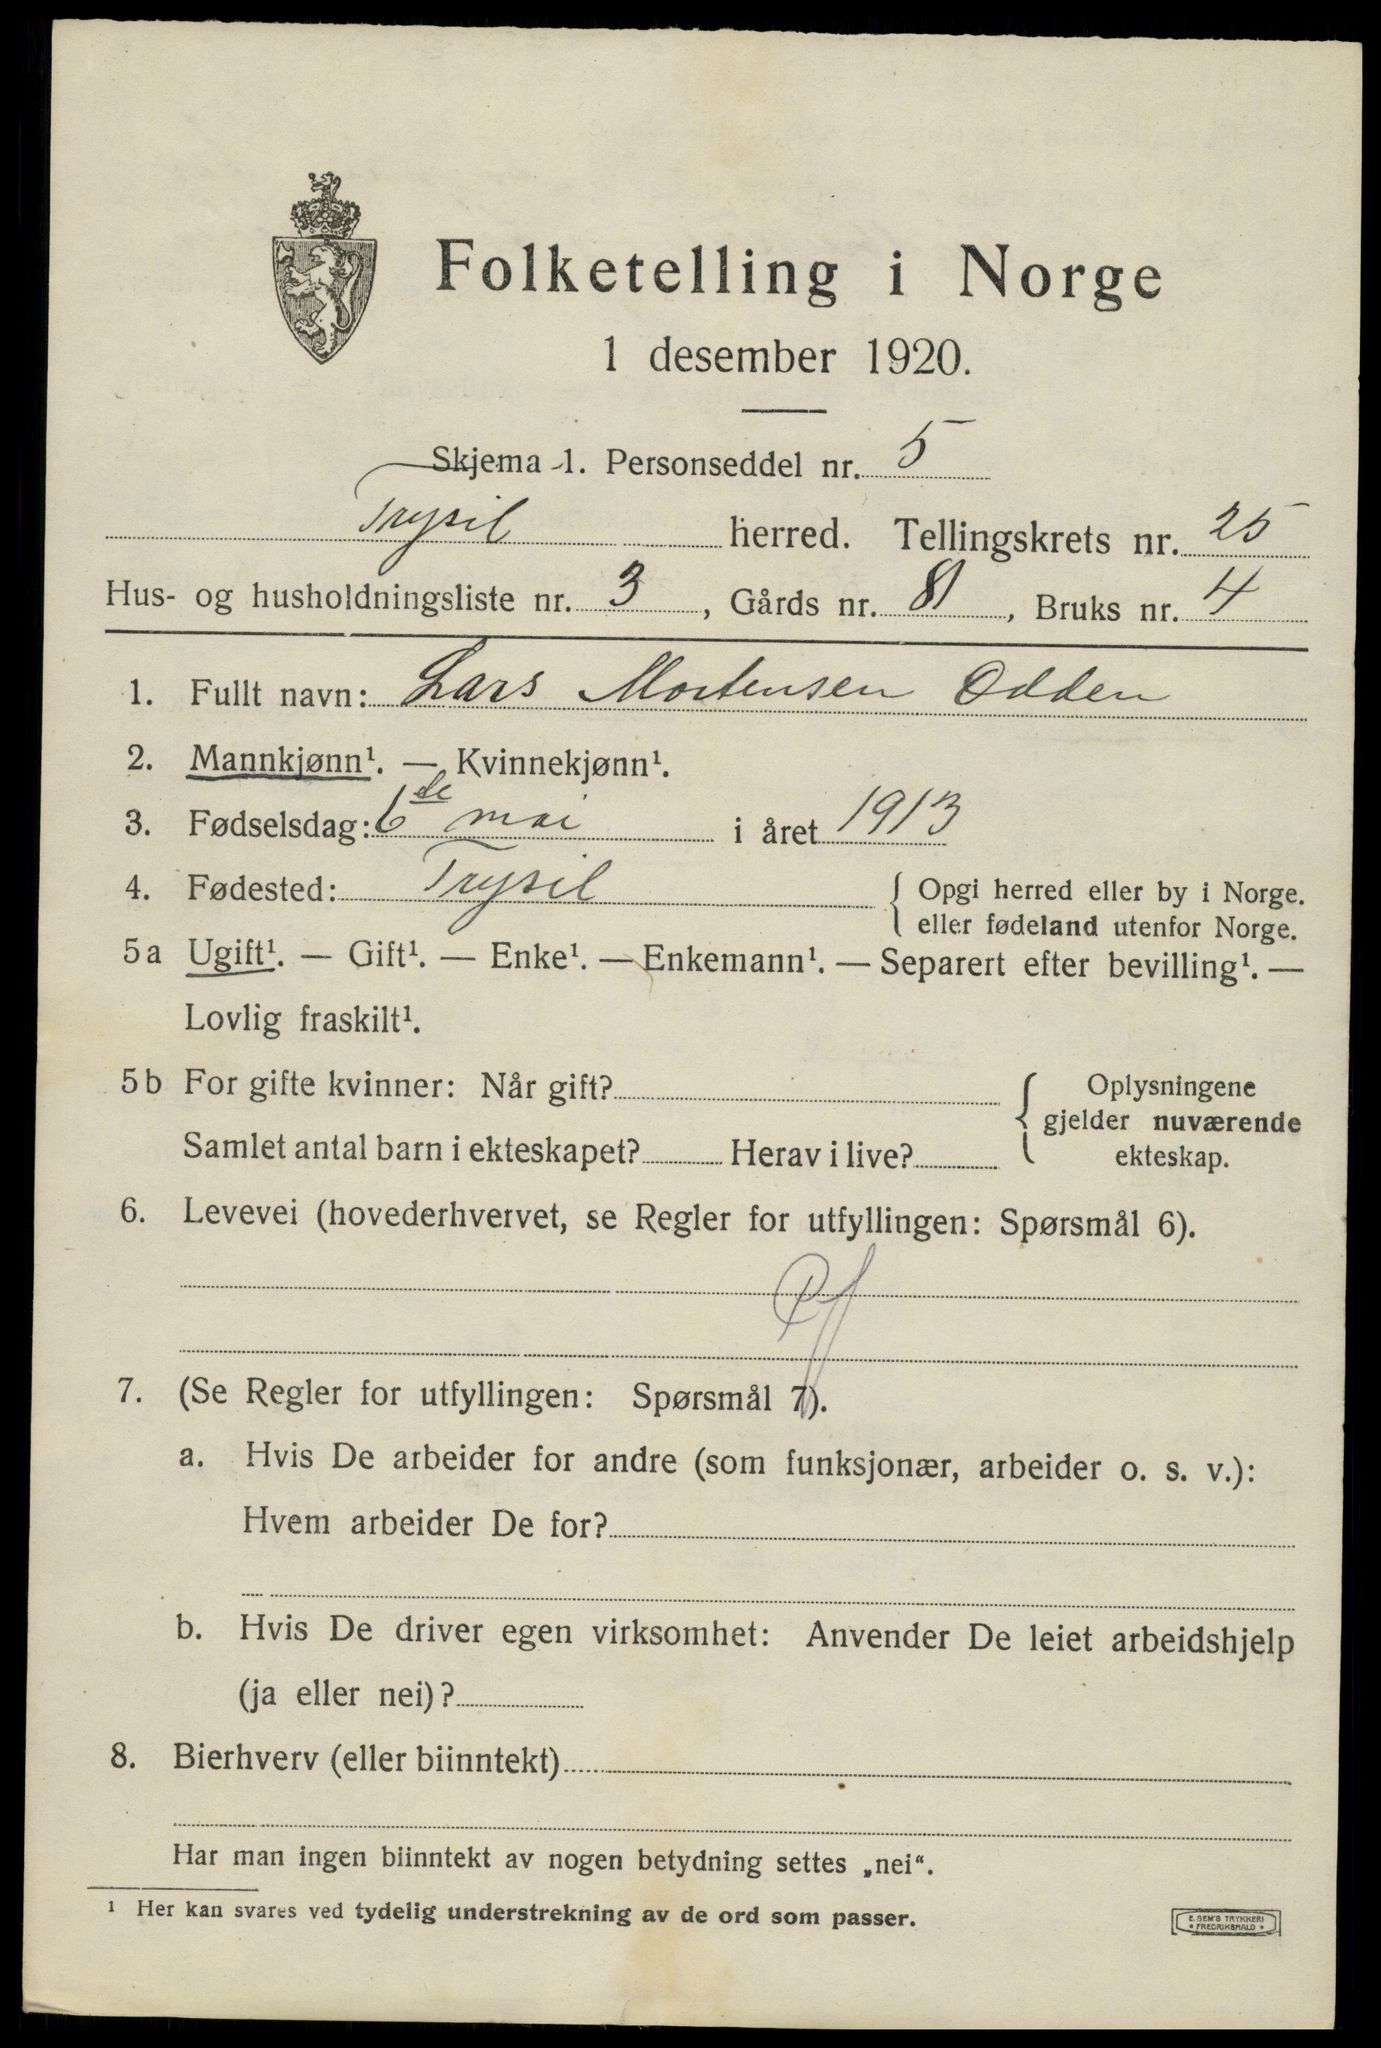 Folketelling i Norge
1 desember 1920.
Skjema 1. Personseddel nr. 5
Trysil herred. Tellingskrets nr. 25
Hus- og husholdningsliste nr. 3, Gårds nr. 81, Bruks nr. 4
1. Fullt navn: Lars Mortensen Odden
2. Mannkjønn¹. — Kvinnekjønn¹.
3. Fødselsdag: 6te mai i året 1913
4. Fødested: Trysil { Opgi herred eller by i Norge.
eller fødeland utenfor Norge.
5a Ugift¹. — Gift¹. — Enke¹. — Enkemann¹. — Separert efter bevilling¹. —
Lovlig fraskilt¹.
5b For gifte kvinner: Når gift? { Oplysningene
gjelder nuværende
Samlet antal barn i ekteskapet? Herav i live? ekteskap.
6. Levevei (hovederhvervet, se Regler for utfyllingen: Spørsmål 6).
7. (Se Regler for utfyllingen: Spørsmål 7).
a. Hvis De arbeider for andre (som funksjonær, arbeider o. s. v.):
Hvem arbeider De for?
b. Hvis De driver egen virksomhet: Anvender De leiet arbeidshjelp
(ja eller nei)?
8. Bierhverv (eller biinntekt)
Har man ingen biinntekt av nogen betydning settes „nei“.
¹ Her kan svares ved tydelig understrekning av de ord som passer.
E. SEM'S TRYKKERI
• FREDRIKSHALD •